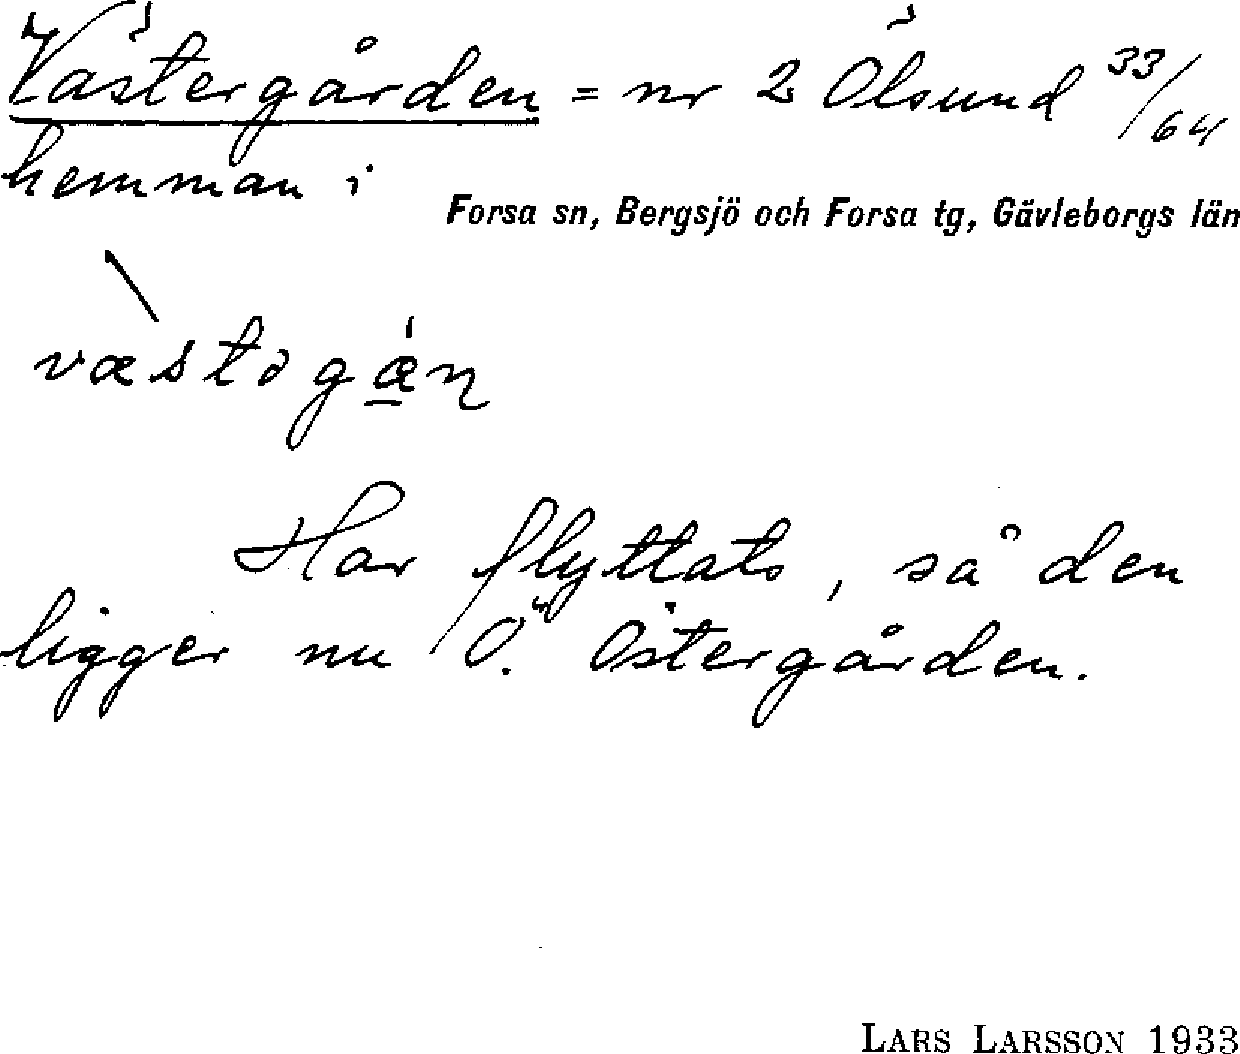 Västergården = nr 2 Ölsund 33/64
hemman i
Forsa sn, Bergsjö och Forsa tg, Gävleborgs län
væstəgǽ̲ɳ
Har flyttats, så den
ligger nu Ö. Östergården.
LARS LARSSON 1933